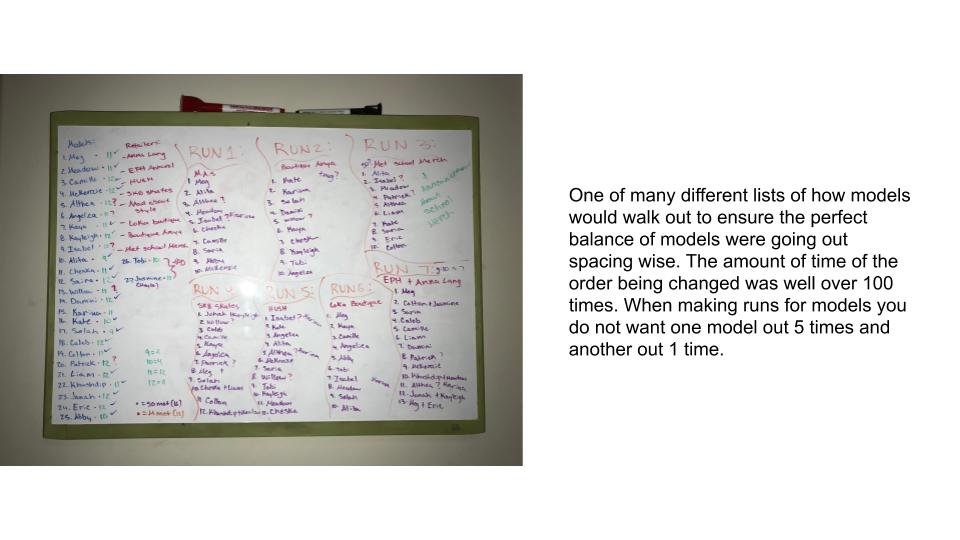 Models:
1. Meg - 11 ✓
2. Meadow - 11 ✓
3. Camille - 12 ✓
4. McKenzie - 12 ✓
5. Althea - 12 ?
6. Angelica - 11 ?
7. Kaya - 11 ✓
8. Kayleigh - 12 ✓
9. Isabel - 11 ?
10. Alita - 9 ✓
11. Cheska - 11 ✓
12. Saria - 12 ✓
13. Willow - 11 ?
14. Damini - 12 ✓
15. Karina - 11
16. Kate - 10 ✓
17. Salah - 9 ✓
18. Caleb - 12 ✓
19. Colton - 11 ✓
20. Patrick - 12 ?
21. Liam - 12 ✓
22. Khushdip - 11 ✓
23. Jonah - 12 ✓
24. Eric - 12 ✓
25. Abby - 10 ✓
Retailers:
- Anna Lang
- EPH Apparel
- HUSH
- SK8 Skates
- Mad about Style
- Loka boutique
- Boutique Anya
- Met school Merch
26. Tobi - 10
27. Jasmine - 11
9 = 2
10 = 4
11 = 12
12 = 11
RUN 1:
M.A.S
1. Meg
2. Alita
3. Althea ?
4. Meadow
5. Isabel ?
6. Cheska
7. Camille
8. Saria
9. Abby
10. McKenzie
RUN 2:
Boutique Anya
1. Kate
2. Karina
3. Salah
4. Damini
5. Willow ?
6. Kaya
7. Cheska
8. Kayleigh
9. Tobi
10. Angelica
RUN 3:
Met school Merch
1. Alita
2. Isabel ?
3. Meadow
4. Patrick ?
5. Althea
6. Liam
7. Kate
8. Saria
9. Eric
10. Colton
SK8 Skates
1. Jonah + Kayleigh
2. Willow ?
3. Caleb
4. Camille
5. Kaya
6. Angelica
7. Patrick ?
8. Meg
9. Salah
10. Cheska + Liam
11. Colton
RUN 5:
HUSH
1. Isabel ? Karina
2. Kate
3. Angelica
4. Alita
5. Althea ? Karina
6. McKenzie
7. Saria
8. Willow ?
9. Tobi
10. Kayleigh
11. Meadow
12. Cheska
RUN 6:
Loka Boutique
1. Meg
2. Kaya
3. Camille
4. Angelica
5. Abby
6. Tobi
7. Isabel
8. Meadow
9. Salah
10. Alita
RUN 7:
EPH + Anna Lang
1. Meg
2. Colton + Jasmine
3. Saria
4. Caleb
5. Camille
6. Liam
7. Damini
8. Patrick ?
9. McKenzie
11. Althea ? Karina
12. Jonah + Kayleigh
13. Meg + Eric
One of many different lists of how models
would walk out to ensure the perfect
balance of models were going out
spacing wise. The amount of time of the
order being changed was well over 100
times. When making runs for models you
do not want one model out 5 times and
another out 1 time.